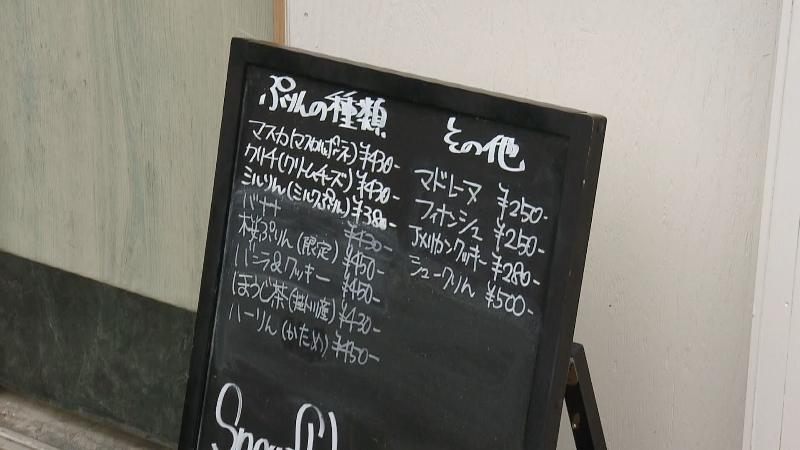 ぷりんの種類
マスカ(マスカルポーネ) ¥430-
クリチ(クリームチーズ) ¥430-
ミルりん(ミルクぷりん) ¥380-
バナナ ¥430-
桜ぷりん(限定) ¥450-
バニラ&クッキー ¥450-
ほうじ茶(掛川産) ¥430-
ハーりん(かため) ¥450-
その他
マドレーヌ ¥250-
フィナンシュ ¥250-
アメリカンクッキー ¥280-
シュークりん ¥500-